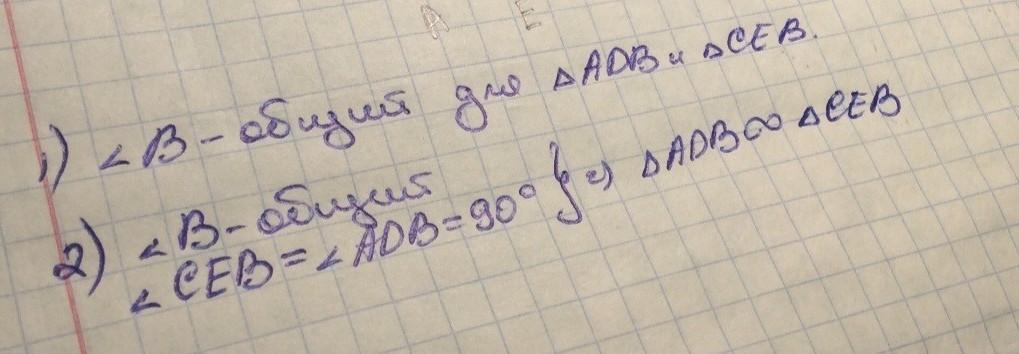 A E
1) ∠B - общий для △ADB и △CEB.
2) ∠B - общий
∠CEB = ∠ADB = 90° } => △ADB ∾ △CEB